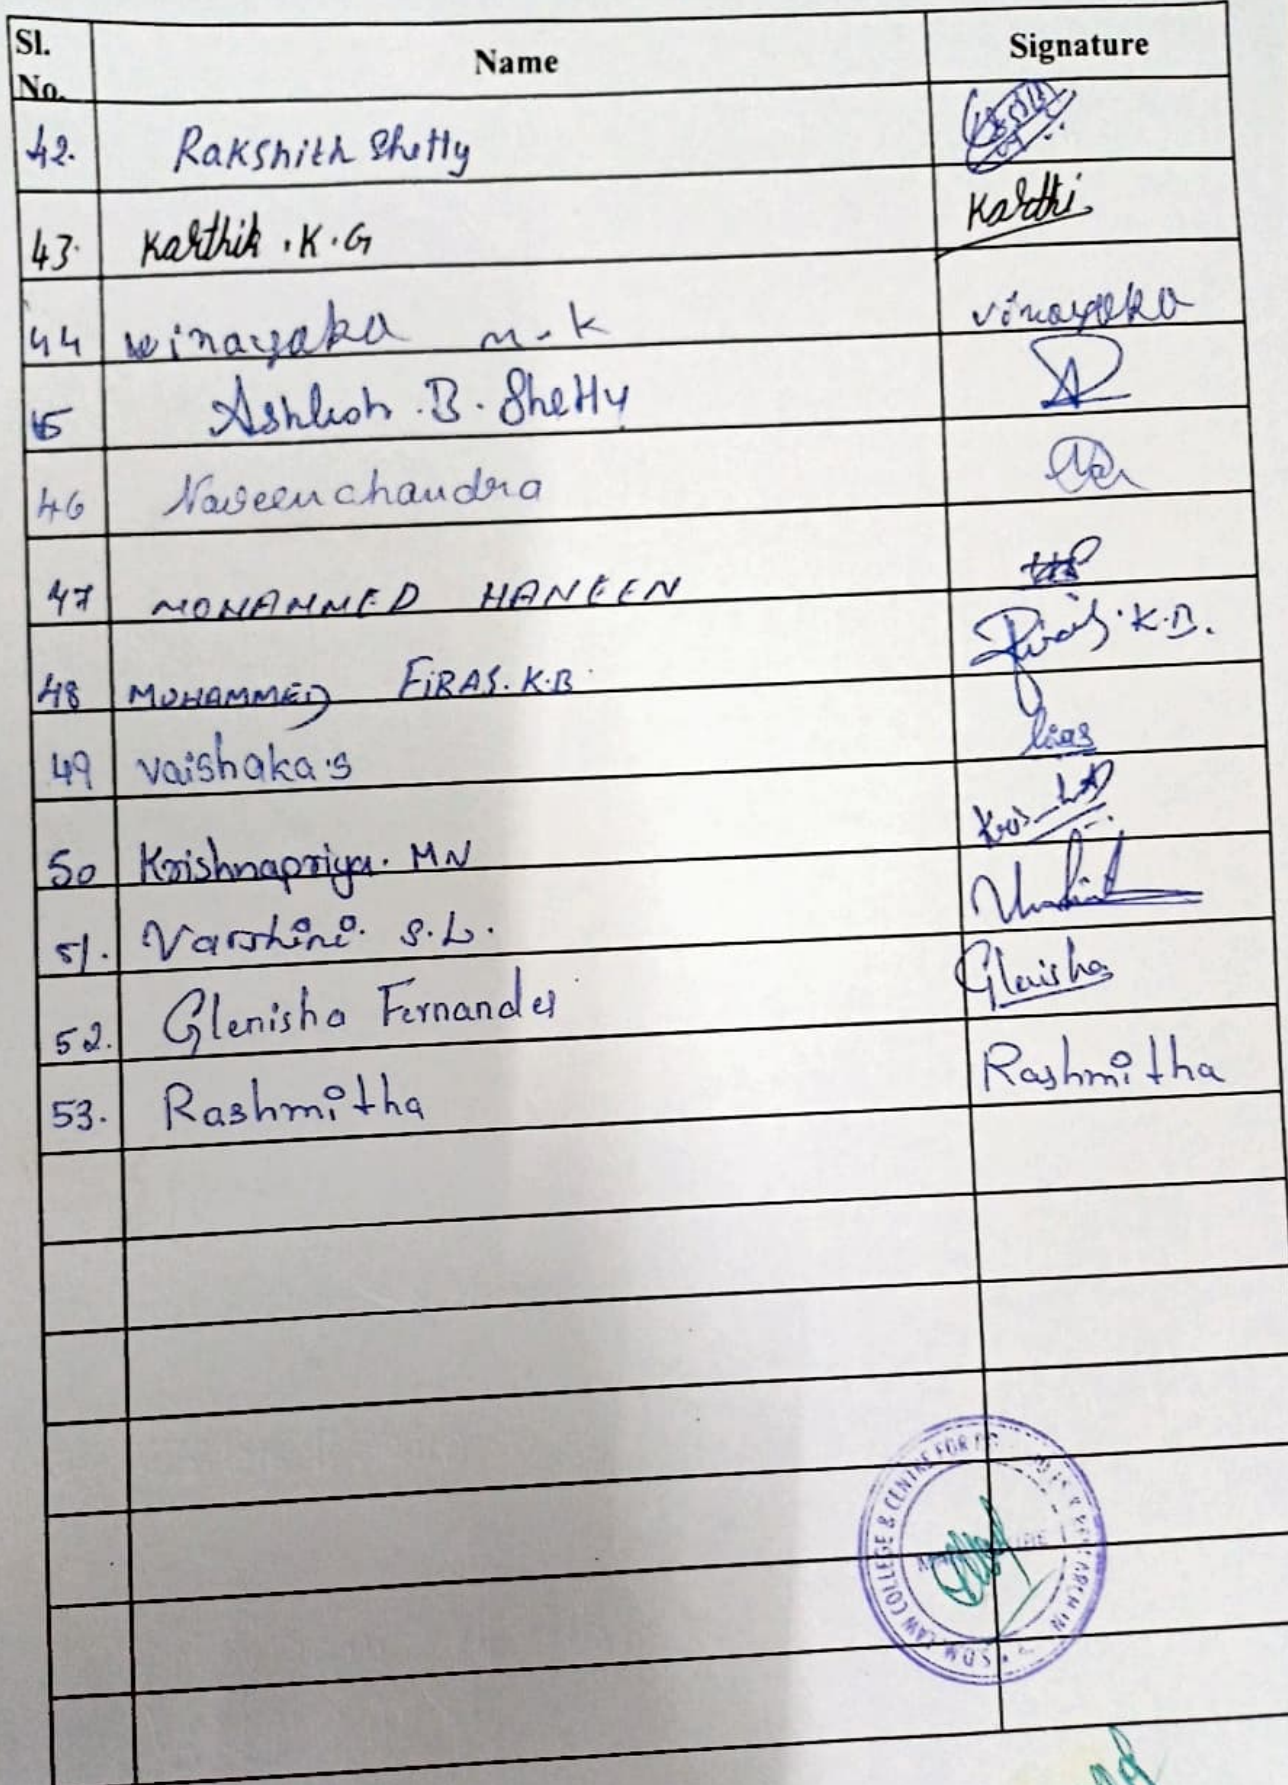 Sl. No. Name Signature
42. Rakshith Shetty
43. Karthik . K . G Karthi
44 Vinayaka M - K Vinayaka
45 . B . Shetty
46 Naveenchandra
47 MOHAMMED HANEEN
48 MOHAMMED FIRAS. K.B. Firas . K.B.
49 Vaishaka . S
50 Krishnapriya . MN
51. Varshini . S . L .
52. Glenisha Fernandes Glenisha
53. Rashmitha Rashmitha
S D M LAW COLLEGE & CENTRE FOR